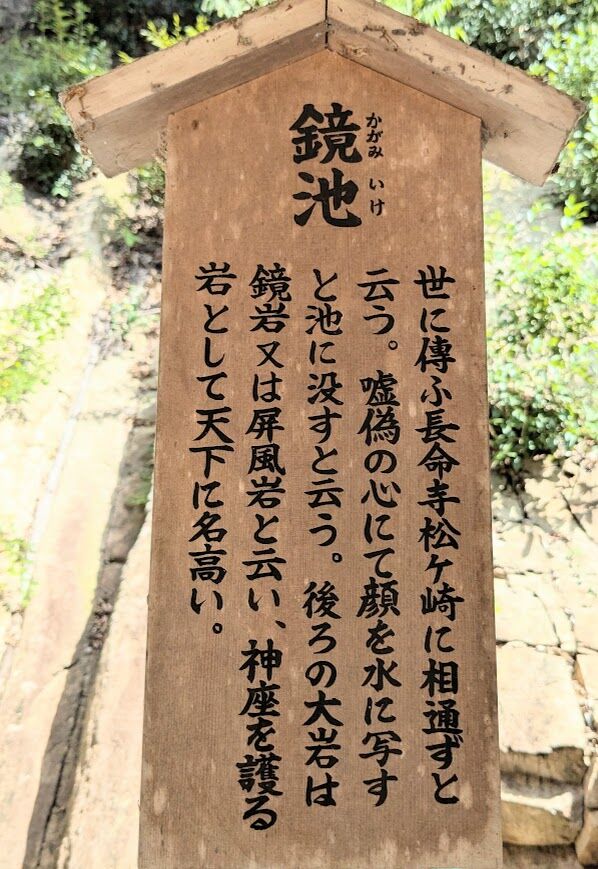 鏡池
かがみ いけ
世に傳ふ長命寺松ヶ崎に相通ずと
云う。嘘偽の心にて顔を水に写す
と池に没すと云う。後ろの大岩は
鏡岩又は屏風岩と云い、神座を護る
岩として天下に名高い。